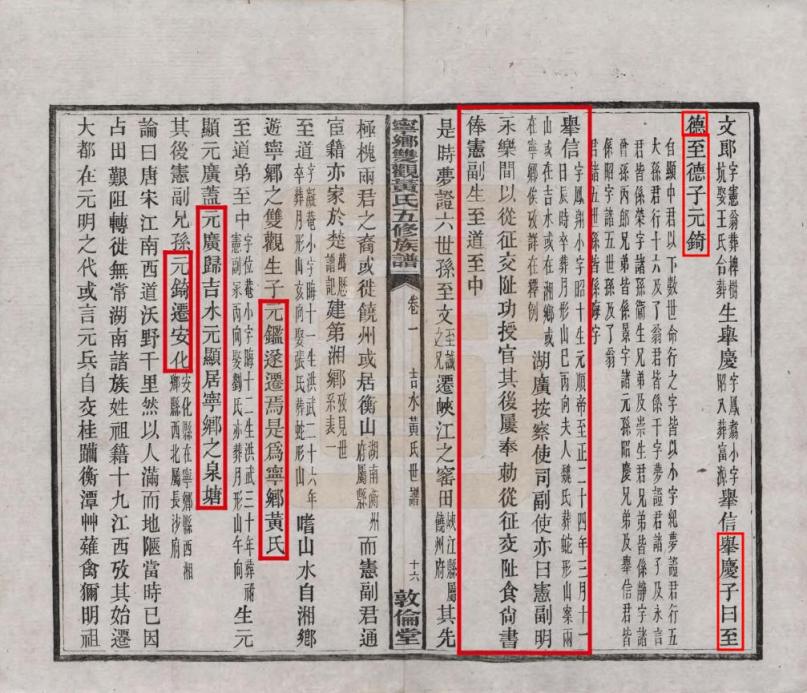 文郎字憲翁葬樟樹坑娶王氏合葬生舉慶字鳳翥小字昭入葬富源舉信舉慶子曰至
德至德子元錡
自顯中君以下數世命行之字皆以小字紀夢證君行五
大孫君行十六及了翁君皆係千字夢證君諸子及永言
君皆係榮字諸孫衞生兄弟及崇生君兄弟皆係靜字諸
曾孫丙郎兄弟皆係景字諸元孫昭慶兄弟及舉信君皆
係昭字諸五世孫及了翁
君諸五世孫皆係晦字
舉信字鳳翔小字昭十生元順帝至正二十四年三月十一日辰時卒葬月形山巳丙向夫人魏氏葬蛇形山案兩
山或在吉水或在湘鄉或在寧鄉俟攷詳在釋例湖廣按察使司副使亦曰憲副明
永樂間以從征交阯功授官其後屢奉勅從征交阯食尙書
俸憲副生至道至中
是時夢證六世孫至文至誠之兄遷峽江之窰田峽江縣屬饒州府其先
寧鄉雙觀黃氏五修族譜
卷一
吉水黃氏世譜
十六
敦倫堂
極槐兩君之裔或徙饒州或居衡山湖南衡州府屬縣而憲副君通
宦籍亦家於楚萬厯譜記建第湘鄉攷見世系表一
至道字凝菴小字晦十一生洪武二十六年卒葬月形山亥向娶張氏葬蛇形山嗜山水自湘鄉
遊寧鄉之雙觀生子元鑑遂遷焉是爲寧鄉黃氏
至道弟至中字位菴小字晦十二生洪武三十年葬祔憲副冢丙向娶劉氏亦葬月形山午向生元
顯元廣蓋元廣歸吉水元顯居寧鄉之泉塘
其後憲副兄孫元錡遷安化安化縣在寧鄉縣西湘鄉縣西北屬長沙府
論曰唐宋江南西道沃野千里然以人滿而地陿當時已因
占田艱阻轉徙無常湖南諸族姓祖籍十九江西攷其始遷
大都在元明之代或言元兵自交桂躪衡潭艸薙禽獮明祖